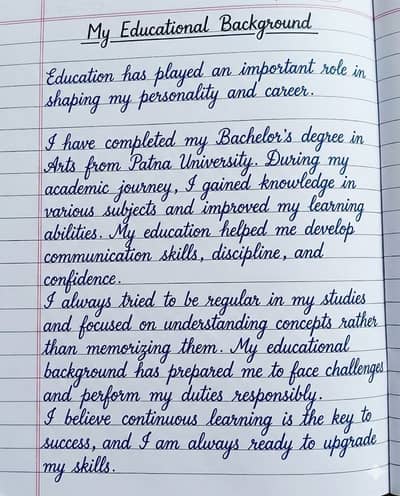 My Educational Background
Education has played an important role in
shaping my personality and career.
I have completed my Bachelor's degree in
Arts from Patna University. During my
academic journey, I gained knowledge in
various subjects and improved my learning
abilities. My education helped me develop
communication skills, discipline, and
confidence.
I always tried to be regular in my studies
and focused on understanding concepts rather
than memorizing them. My educational
background has prepared me to face challenges
and perform my duties responsibly.
I believe continuous learning is the key to
success, and I am always ready to upgrade
my skills.